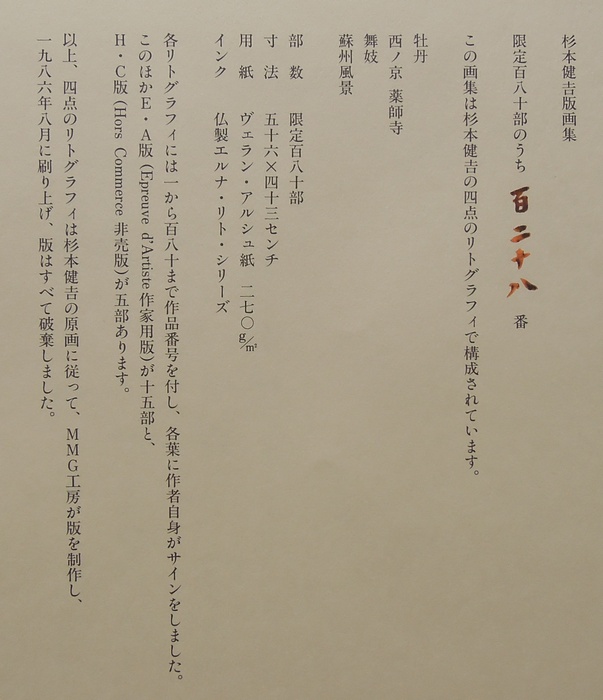 杉本健𠮷版画集
限定百八十部のうち 百二十八 番
この画集は杉本健𠮷の四点のリトグラフィで構成されています。
牡丹
西ノ京 薬師寺
舞妓
蘇州風景
部 数 限定百八十部
寸 法 五十六×四十三センチ
用 紙 ヴェラン・アルシュ紙 二七〇g/m²
インク 仏製エルナ・リト・シリーズ
各リトグラフィには一から百八十まで作品番号を付し、各葉に作者自身がサインをしました。
このほかE・A版(Epreuve d'Artiste 作家用版)が十五部と、
H・C版(Hors Commerce 非売版)が五部あります。
以上、四点のリトグラフィは杉本健𠮷の原画に従って、MMG工房が版を制作し、
一九八六年八月に刷り上げ、版はすべて破棄しました。